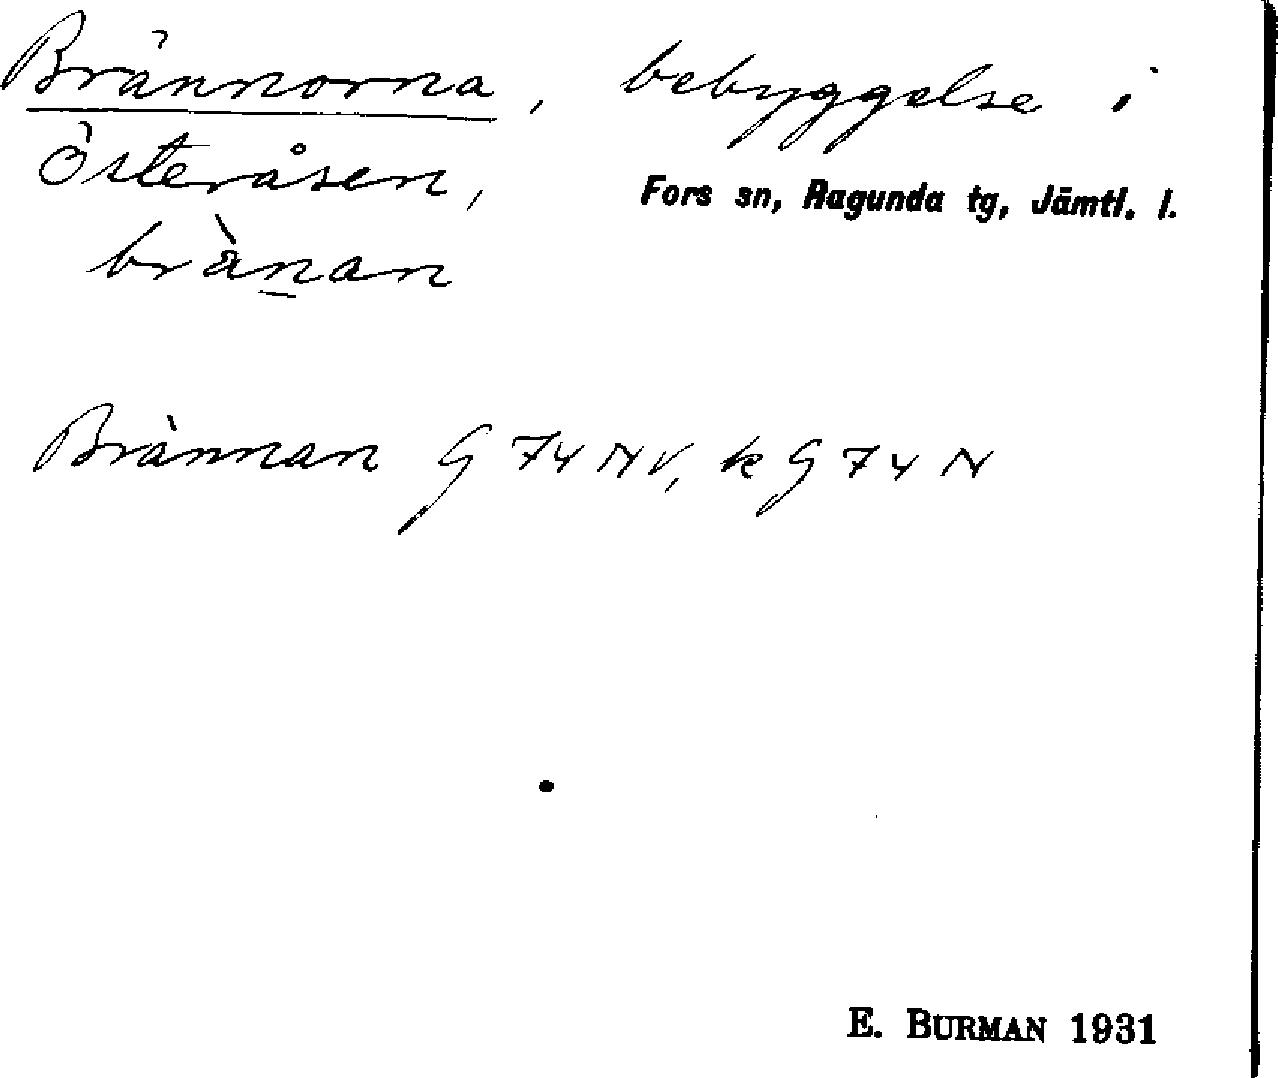 Brännorna, bebyggelse i
Österåsen,
Fors sn, Ragunda tg, Jämtl. l.
brànan
Brännan G 74 NV, k G 74 N
E. BURMAN 1931